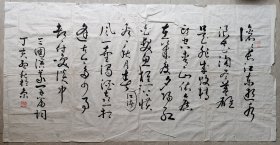 滚滚长江东逝水
浪花淘尽英雄
是非成败转头
空青山依旧
在几度夕阳红
白发渔樵
惯看秋月春
风一壶浊酒喜相
逢古今多少事
都付笑谈中
三国演义
丁亥